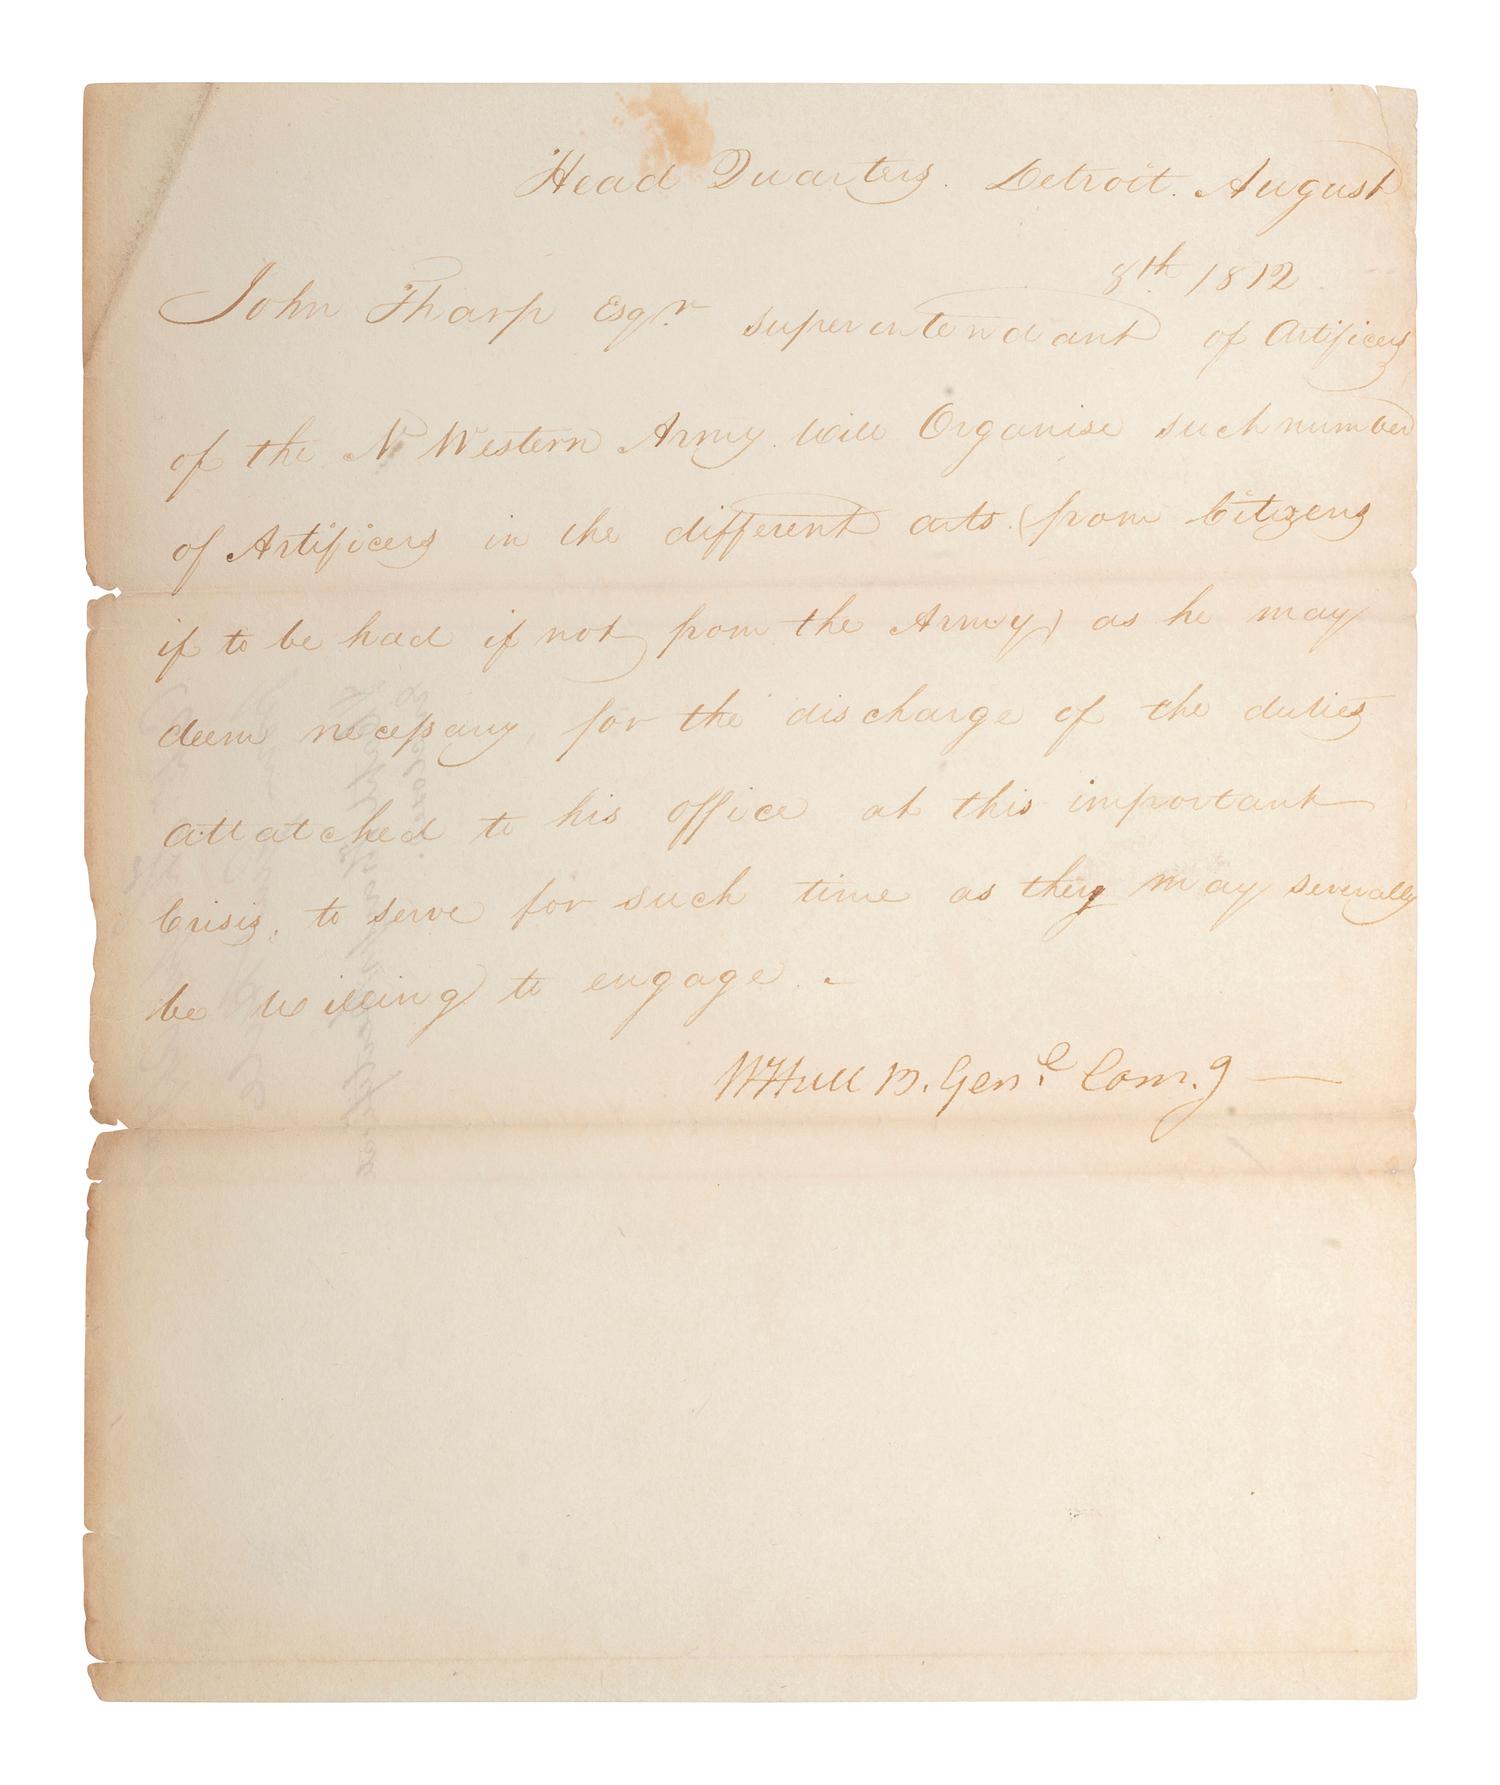 Head Quarters. Detroit. August
8th 1812
John Tharp Esqr. superintendant of Artificers
of the N Western Army will Organise such number
of Artificers in the different arts (from Citizens
if to be had if not from the Army) as he may
deem necessary for the discharge of the duties
attatched to his office at this important
Crisis, to serve for such time as they may severally
be willing to engage. -
W Hull B. Genl. Comg —